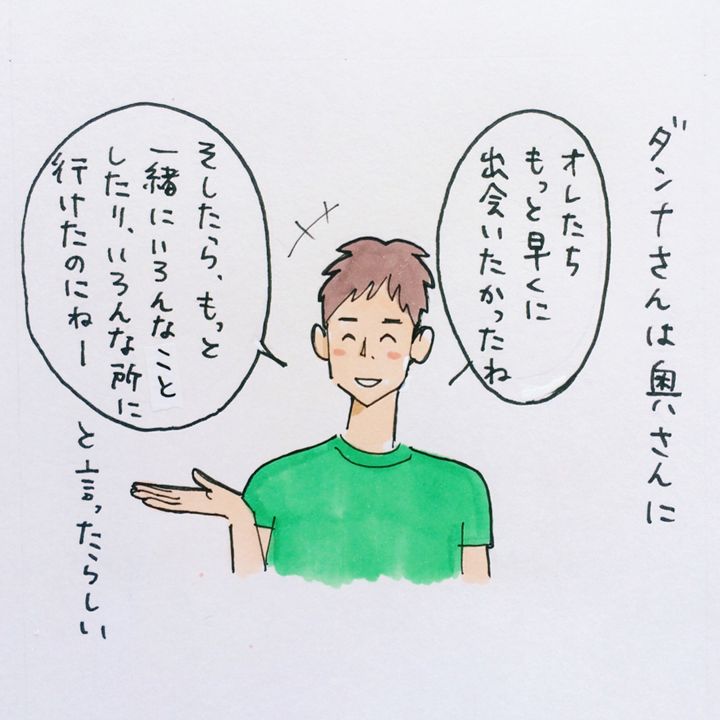 ダンナさんは奥さんに
オレたち
もっと早くに
出会いたかったね
そしたら、もっと
一緒にいろんなこと
したり、いろんな所に
行けたのにねー
と言ったらしい